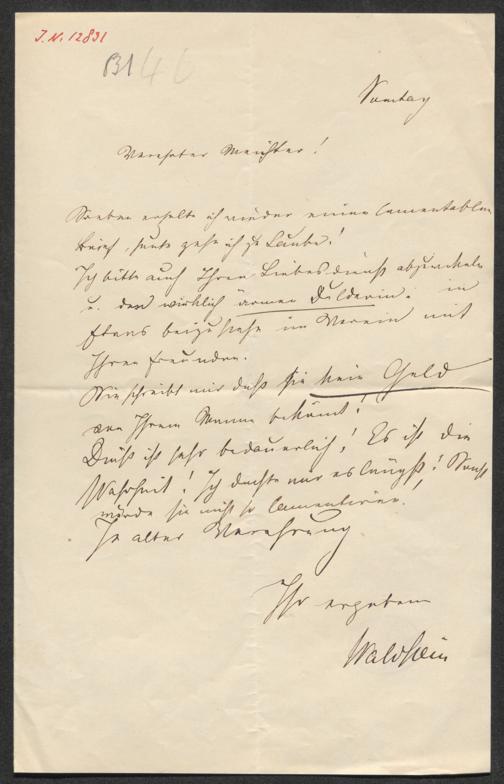 I.N. 12831
Sonntag
Verehrter Meister!
Soeben erhalte ich wieder einen lamentablen
Brief, heute gehe ich zu Laube!
Ich bitte auch Ihren Liebesdienst
u. der wirklich armen Dulderin. in
Etwas beizustehen im Verein mit
Ihren Freunden.
Sie schreibt mir daß sie kein Geld
von Ihrem Manne bekömt!
Dieß ist sehr bedauerlich! Es ist die
Wahrheit! Ich dachte mir es längst! Sonst
würde sie nicht so lamentieren!
In alter Verehrung
Ihr ergebener
Waldstein